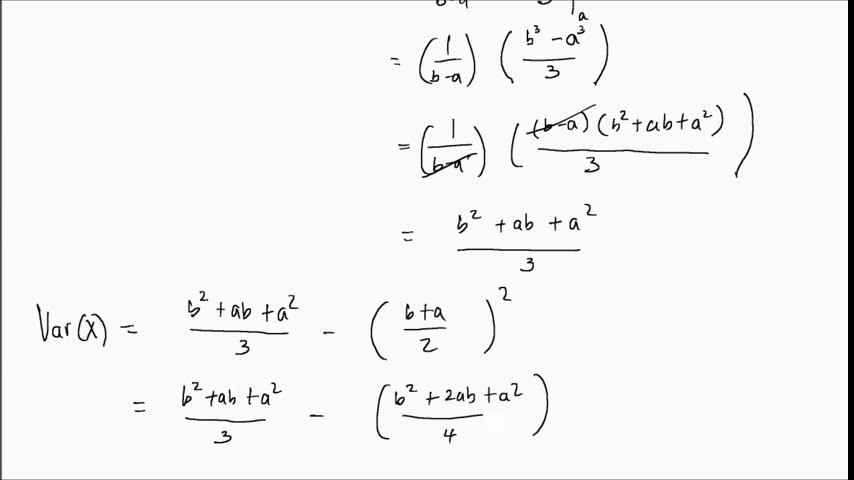 = (1/(b-a)) ((b³ - a³)/3)
= (1/(b-a)) ((b-a)(b² + ab + a²)/3)
= (b² + ab + a²)/3
Var(X) = (b² + ab + a²)/3 - ((b+a)/2)²
= (b² + ab + a²)/3 - ((b² + 2ab + a²)/4)